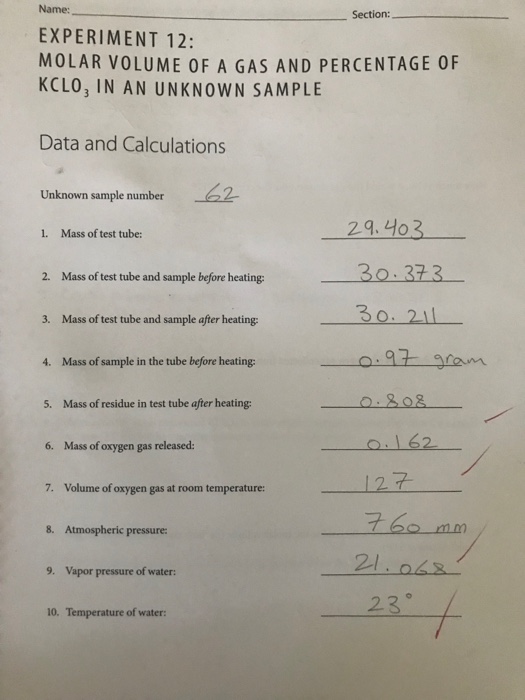 Name: Section:
EXPERIMENT 12:
MOLAR VOLUME OF A GAS AND PERCENTAGE OF
KCLO₃ IN AN UNKNOWN SAMPLE
Data and Calculations
Unknown sample number 62
1. Mass of test tube: 29.403
2. Mass of test tube and sample before heating: 30.373
3. Mass of test tube and sample after heating: 30.211
4. Mass of sample in the tube before heating: 0.97 gram
5. Mass of residue in test tube after heating: 0.808
6. Mass of oxygen gas released: 0.162
7. Volume of oxygen gas at room temperature: 127
8. Atmospheric pressure: 760 mm
9. Vapor pressure of water: 21.068
10. Temperature of water: 23°